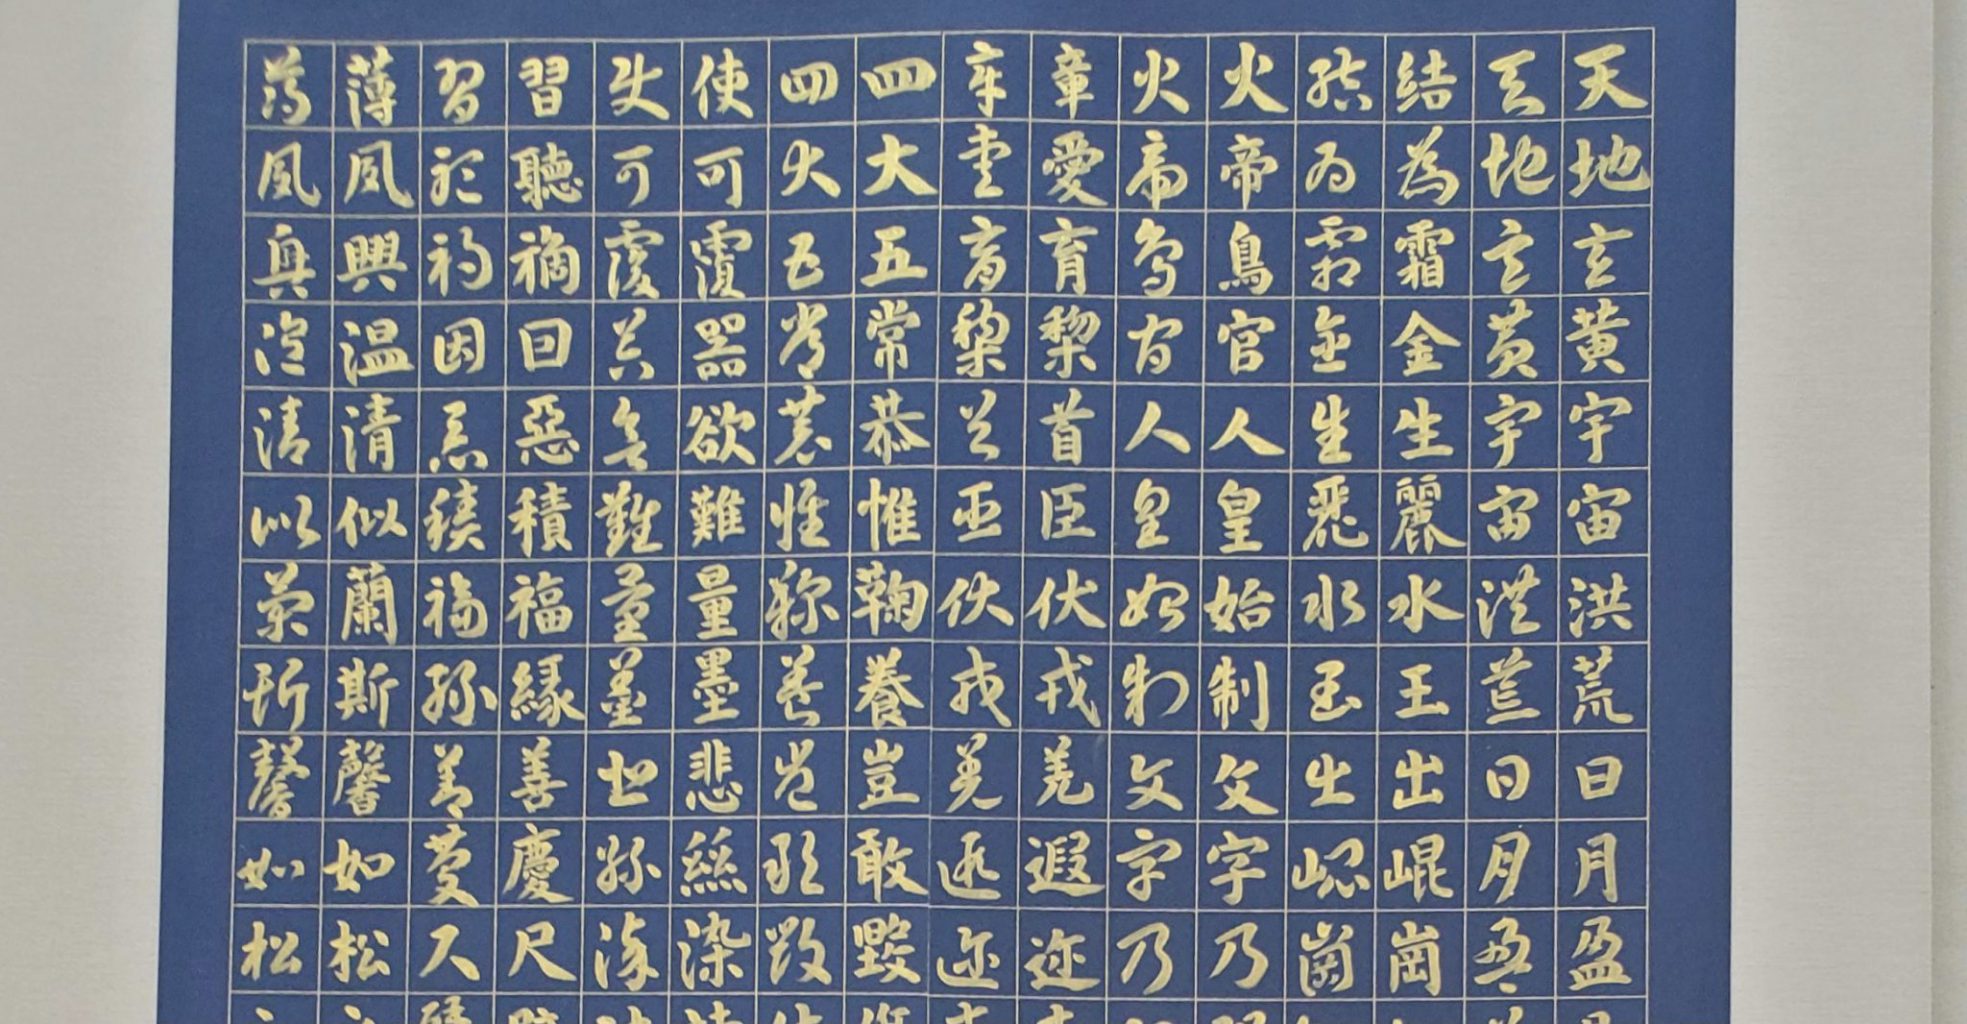 天地玄黄宇宙洪荒日月盈
天地玄黄宇宙洪荒日月盈
結為霜金生麗水玉出崐崗
結為霜金生麗水玉出崐崗
火帝鳥官人皇始制文字乃
火帝鳥官人皇始制文字乃
章愛育黎首臣伏戎羌遐迩
章愛育黎首臣伏戎羌遐迩
四大五常恭惟鞠養豈敢毀
四大五常恭惟鞠養豈敢毀
使可覆器欲難量墨悲絲染
使可覆器欲難量墨悲絲染
習聽禍因惡積福緣善慶尺
習聽禍因惡積福緣善慶尺
薄夙興温清似蘭斯馨如松
薄夙興温清似蘭斯馨如松